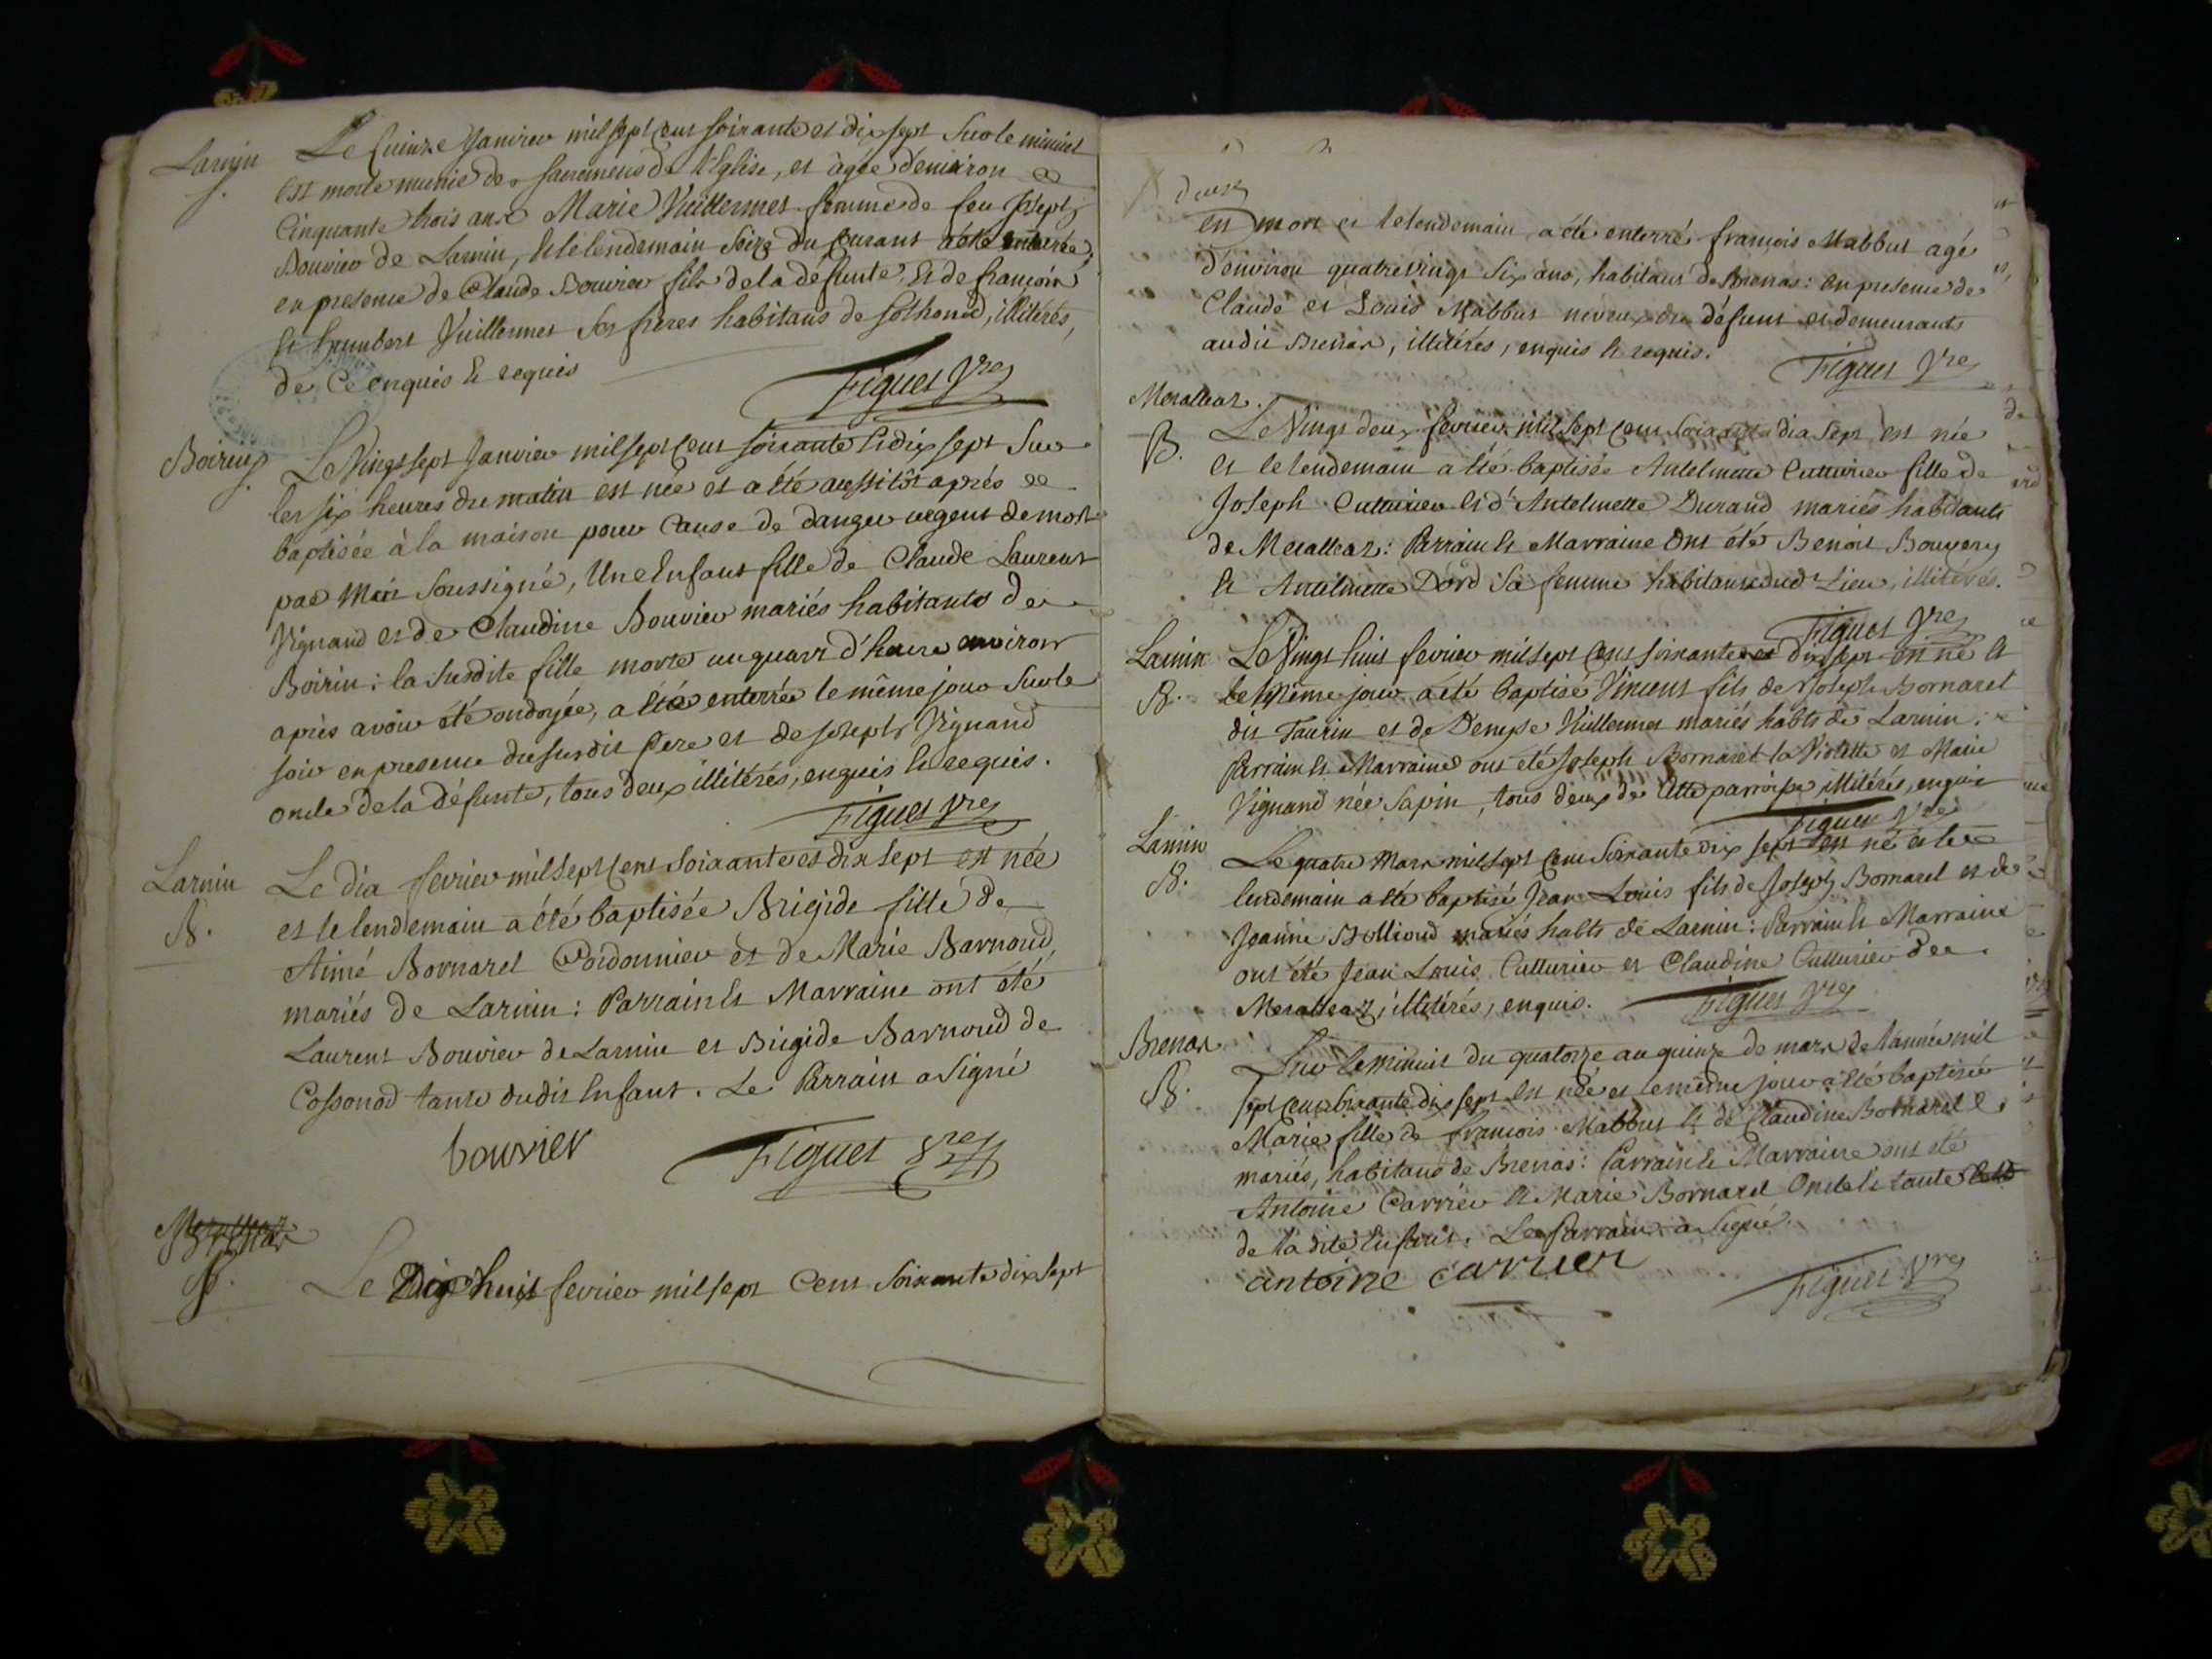 Larnin
S.
Le Quinze Janvier mil sept cent soixante et dix sept sur le minuit
est morte munie des sacremens de l'Eglise, et agée d'environ
Cinquante trois ans Marie Vuillermet femme de feu Joseph
Bouvier de Larnin, et le lendemain seize du Courant a été enterrée;
en presence de Claude Bouvier fils de la défunte, et de françois
et humbert Vuillermet ses freres habitans de Sothonod, illitérés,
de Ce enquis et requis
Figuet Vre
Boirin
S.
Le Vingt sept Janvier mil sept Cent soixante et dix sept sur
les six heures du matin est née et a été aussitôt aprés
baptisée à la maison pour Cause de danger urgent de mort
par Moi soussigné, Une Enfant fille de Claude Laurent
Vignand et de Claudine Bouvier mariés habitants de
Boirin: la susdite fille morte un quart d'heure environ
après avoir été ondoyée, a été enterrée le même jour sur le
soir en presence du susdit Pere et de Joseph Vignand
oncle de la défunte, tous deux illitérés, enquis et requis.
Figuet Vre
Larnin
B.
Le dix fevrier mil sept Cent soixante et dix sept est née
et le lendemain a été baptisée Brigide fille de
Aimé Bornarel Cordonnier et de Marie Barnoud,
mariés de Larnin: Parrain et Marraine ont été
Laurent Bouvier de Larnin et Brigide Barnoud de
Cossonod tante dudit Enfant. Le Parrain a signé
bouvier
Figuet Vre
Brenas
S.
Le Dix huit fevrier mil sept Cent soixante dix sept
deux
est mort et le lendemain a été enterré françois Mabbut agé
d'environ quatre vingt six ans, habitant de Brenas: en presence de
Claude et Louis Mabbut neveux du défunt et demeurants
audit Brenas, illitérés, enquis et requis.
Figuet Vre
Meralleaz.
B.
Le Vingt deux fevrier mil sept cent soixante dix sept est née
et le lendemain a été baptisée Antelmette Cutturier fille de
Joseph Cutturier et d'Antelmette Durand mariés habitants
de Meralleaz: Parrain et Marraine ont été Benoit Bougery
et Antelmette Dord sa femme habitans dud. Lieu, illitérés.
Figuet Vre
Larnin
B.
Le Vingt huit fevrier mil sept Cent soixante et dix sept est né et
le même jour a été baptisé Vincent fils de Joseph Bornarel
dit Taurin et de Denyse Vuillermet mariés habts de Larnin:
Parrain et Marraine ont été Joseph Bornarel la Violette et Marie
Vignand née Savin, tous deux de cette parroisse illitérés, enquis
Figuet Vre
Larnin
B.
Le quatre Mars mil sept Cent Soixante dix sept est né et le
lendemain a été baptisé Jean Louis fils de Joseph Bornarel et de
Jeanne Bollioud mariés habts de Larnin: Parrain et Marraine
ont été Jean Louis Cutturier et Claudine Cutturier de
Meralleaz, illitérés, enquis.
Figuet Vre
Brenas
B.
Sur le minuit du quatorze au quinze de mars de l'année mil
sept cent soixante dix sept est née et le même jour a été baptisée
Marie fille de françois Mabbut et de Claudine Bornarel
mariés, habitans de Brenas: Parrain et Marraine ont été
Antoine Carrier et Marie Bornarel Oncle et tante
de la dite Enfant. Le Parrain a signé.
antoine carrier
Figuet Vre